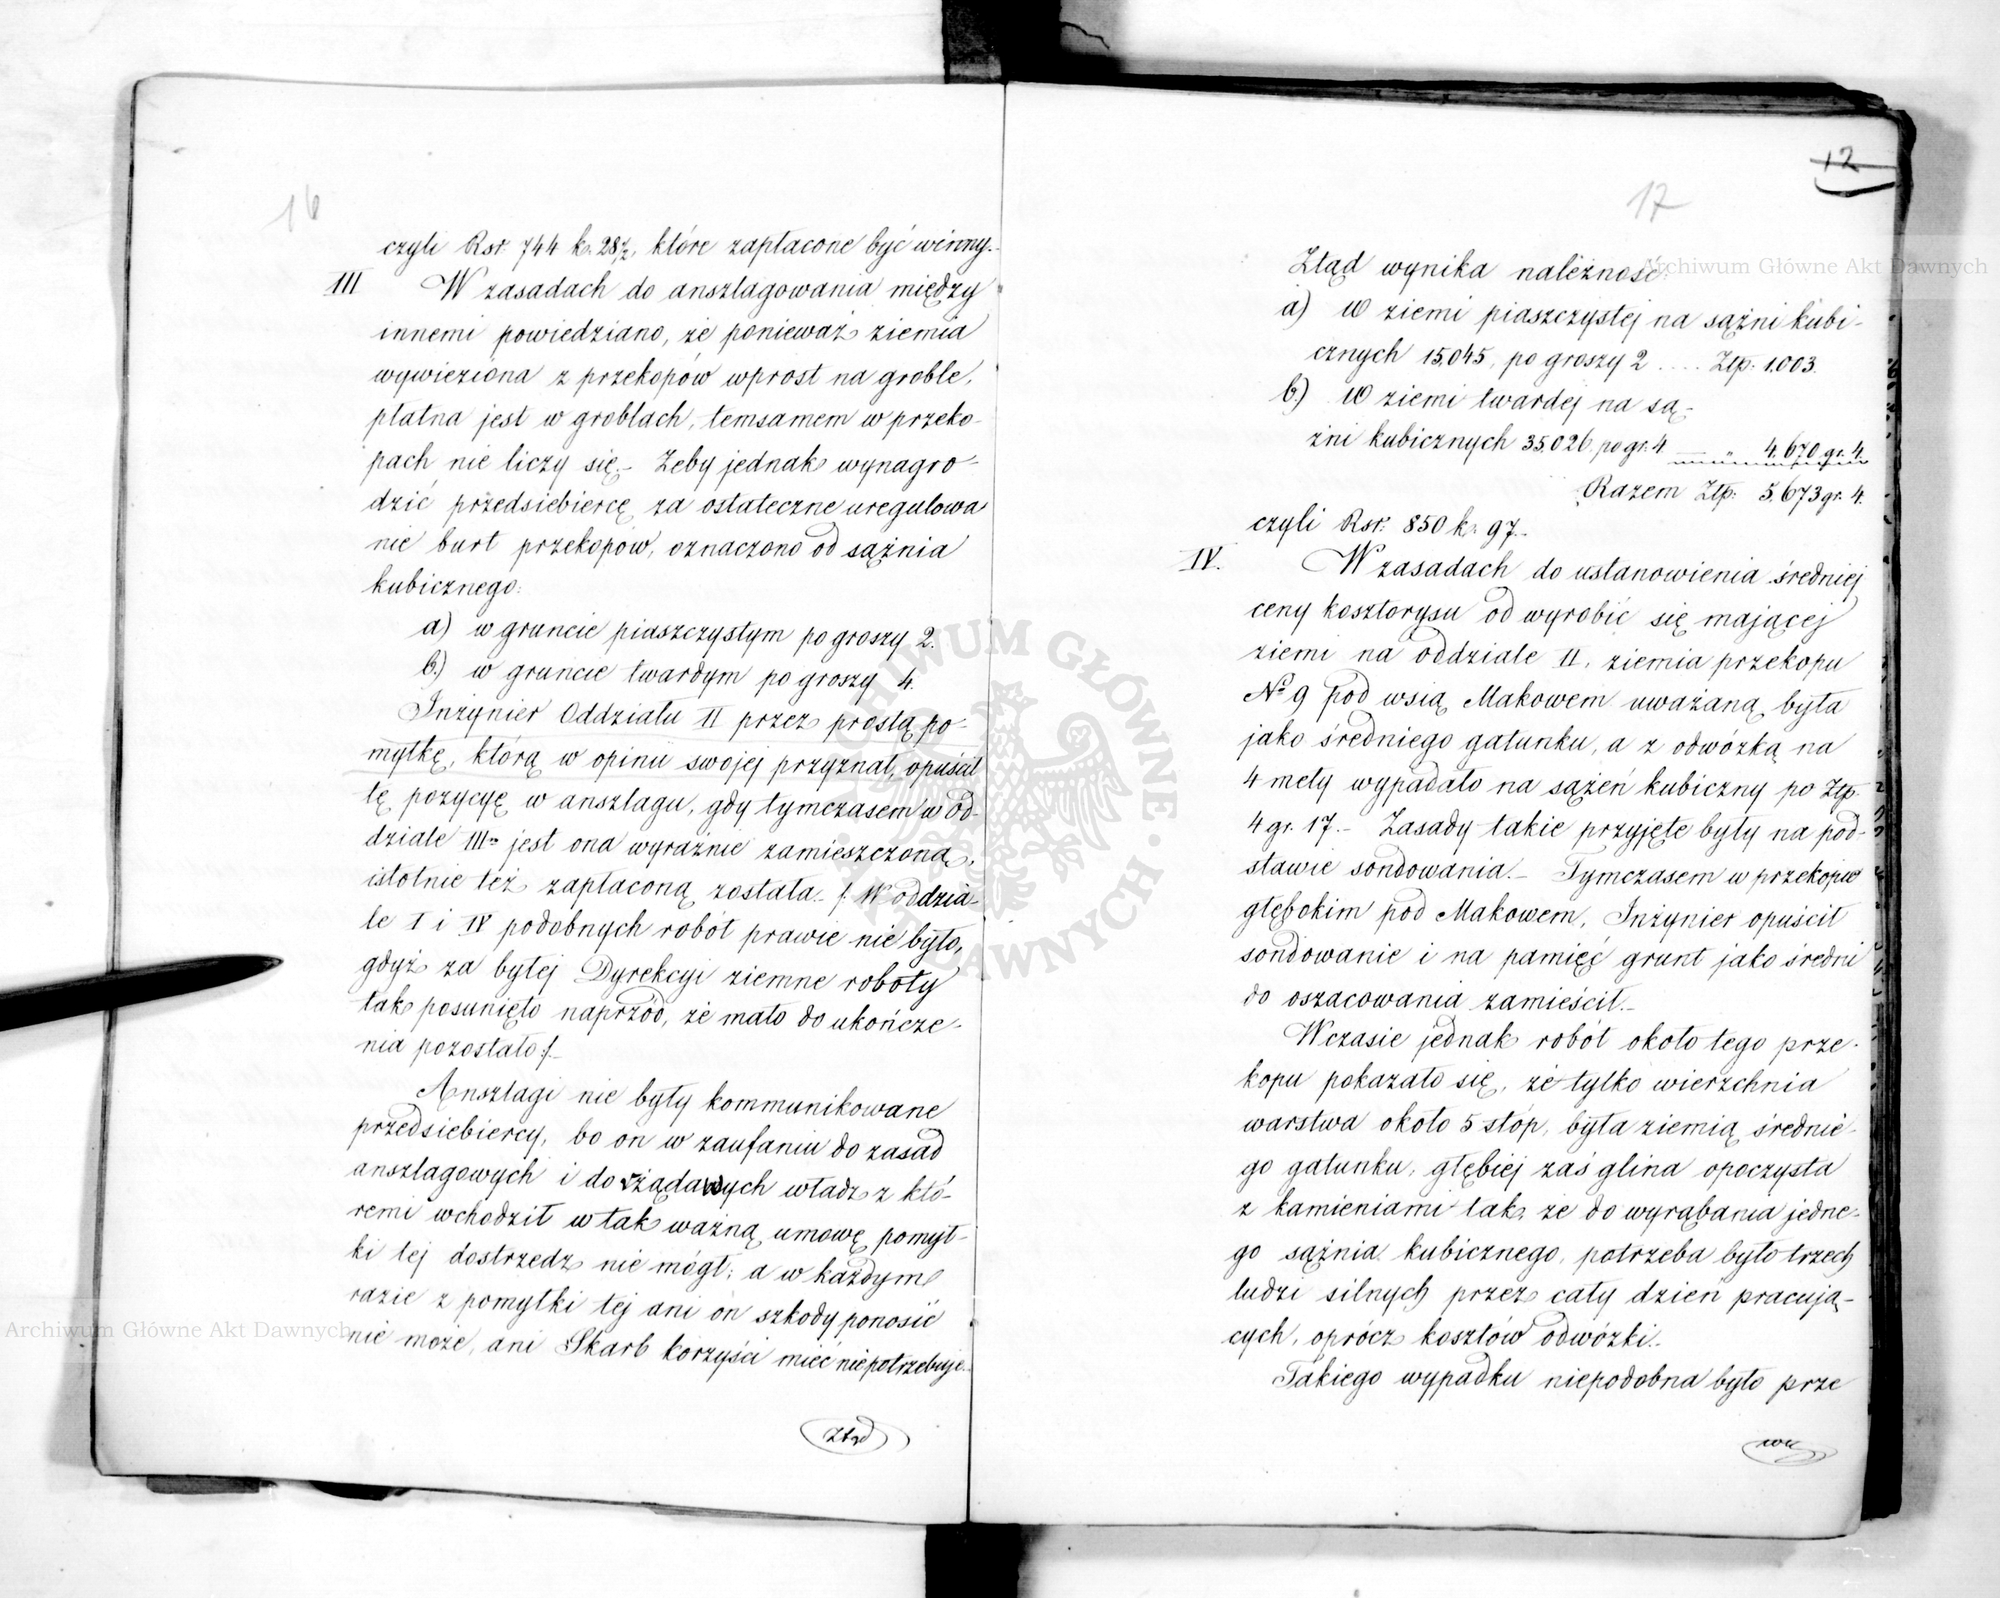 16
czyli Rsr. 744 k. 28½, które zapłacone być winny.
III W zasadach do anszlagowania między
innemi powiedziano, że ponieważ ziemia
wywieziona z przekopów wprost na groble,
płatna jest w groblach, temsamem w przeko-
pach nie liczy się.- Żeby jednak wynagro-
dzić przedsiebiercę za ostateczne uregulowa
nie burt przekopów, oznaczono od sążnia
kubicznego:
a) w gruncie piaszczystym po groszy 2.
b.) w gruncie twardym po groszy 4.
Inżynier Oddziału II przez prostą po-
myłkę, którą w opinii swojej przyznał, opuścił
tę pozycyę w anszlagu, gdy tymczasem w Od-
dziale III jest ona wyraźnie zamieszczoną,
istotnie też zapłaconą została.- /: W oddzia-
le I i IV podobnych robót prawie nie było,
gdyż za byłej Dyrekcyi ziemne roboty
tak posunięto naprzód, że mało do ukończe-
nia pozostało :/.-
Anszlagi nie były kommunikowane
przedsiebiercy, bo on w zaufaniu do zasad
anszlagowych i do władz z któ-
remi wchodził w tak ważną umowę pomył-
ki tej dostrzedz nie mógł; a w każdym
razie z pomyłki tej ani on szkody ponosić
nie może, ani Skarb korzyści mieć niepotrzebuje.
Ztąd
12
17
Ztąd wynika należność:
a) w ziemi piaszczystej na sążni kubi-
cznych 15,045, po groszy 2 .... Złp. 1,003.
b.) w ziemi twardej na są-
żni kubicznych 35,026. po gr. 4 4,670 gr. 4.
Razem Złp. 5,673 gr. 4.
czyli Rsr. 850 k. 97.-
IV. W zasadach do ustanowienia średniej
ceny kosztorysu od wyrobić się mającej
ziemi na oddziale II, ziemia przekopu
No 9 pod wsią Makowem uważaną była
jako średniego gatunku, a z odwózką na
4 mety wypadało na sążeń kubiczny po Złp.
4 gr. 17.- Zasady takie przyjęte były na pod-
stawie sondowania.- Tymczasem w przekopie
głębokim pod Makowem, Inżynier opuścił
sondowanie i na pamięć grunt jako średni
do oszacowania zamieścił.-
W czasie jednak robót około tego prze-
kopu pokazało się, że tylko wierzchnia
warstwa około 5 stóp, była ziemią średnie-
go gatunku, głębiej zaś glina opoczysta
z kamieniami tak, że do wyrąbania jedne-
go sążnia kubicznego, potrzeba było trzech
ludzi silnych przez cały dzień pracują-
cych, oprócz kosztów odwózki.-
Takiego wypadku niepodobna było prze
Archiwum Główne Akt Dawnych
Archiwum Główne Akt Dawnych
ARCHIWUM GŁÓWNE AKT DAWNYCH